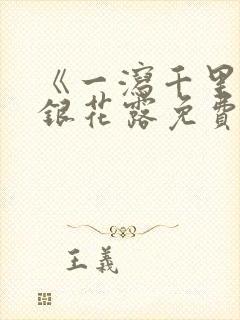 《一瀉千里
銀花露免費
王義